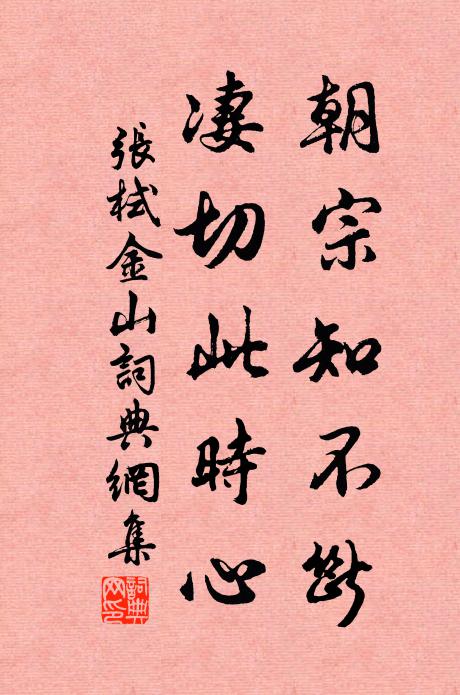 朝宗知不断
凄切此時心
張栻金山詞典網集
詞典網印